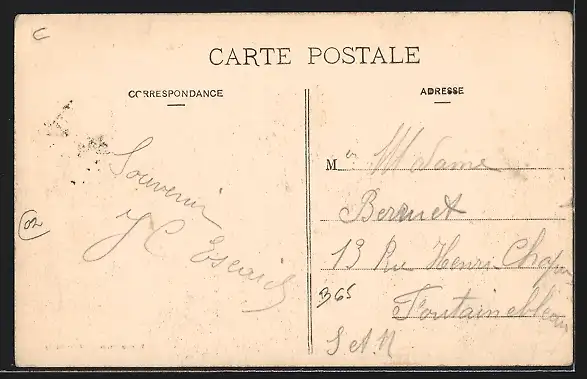 C
CARTE POSTALE
CORRESPONDANCE
ADRESSE
Souvenir
J C
02
M Madame
Bernet
13 Rue Henri Chapu
365
Fontainebleau
S et M